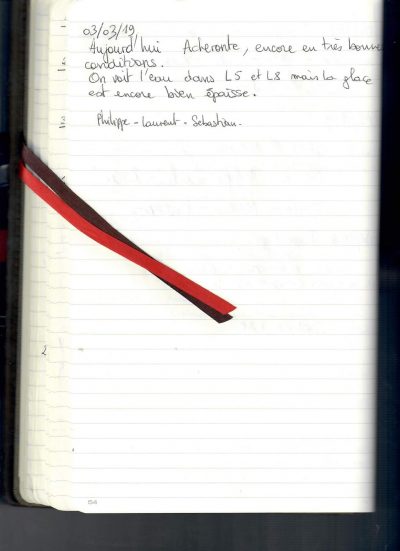 03/03/19
Aujourd'hui Acheronte, encore en très bonnes
conditions.
On voit l'eau dans L5 et L8 mais la glace
est encore bien épaisse.
Philippe - Laurent - Sebastian.
2
54